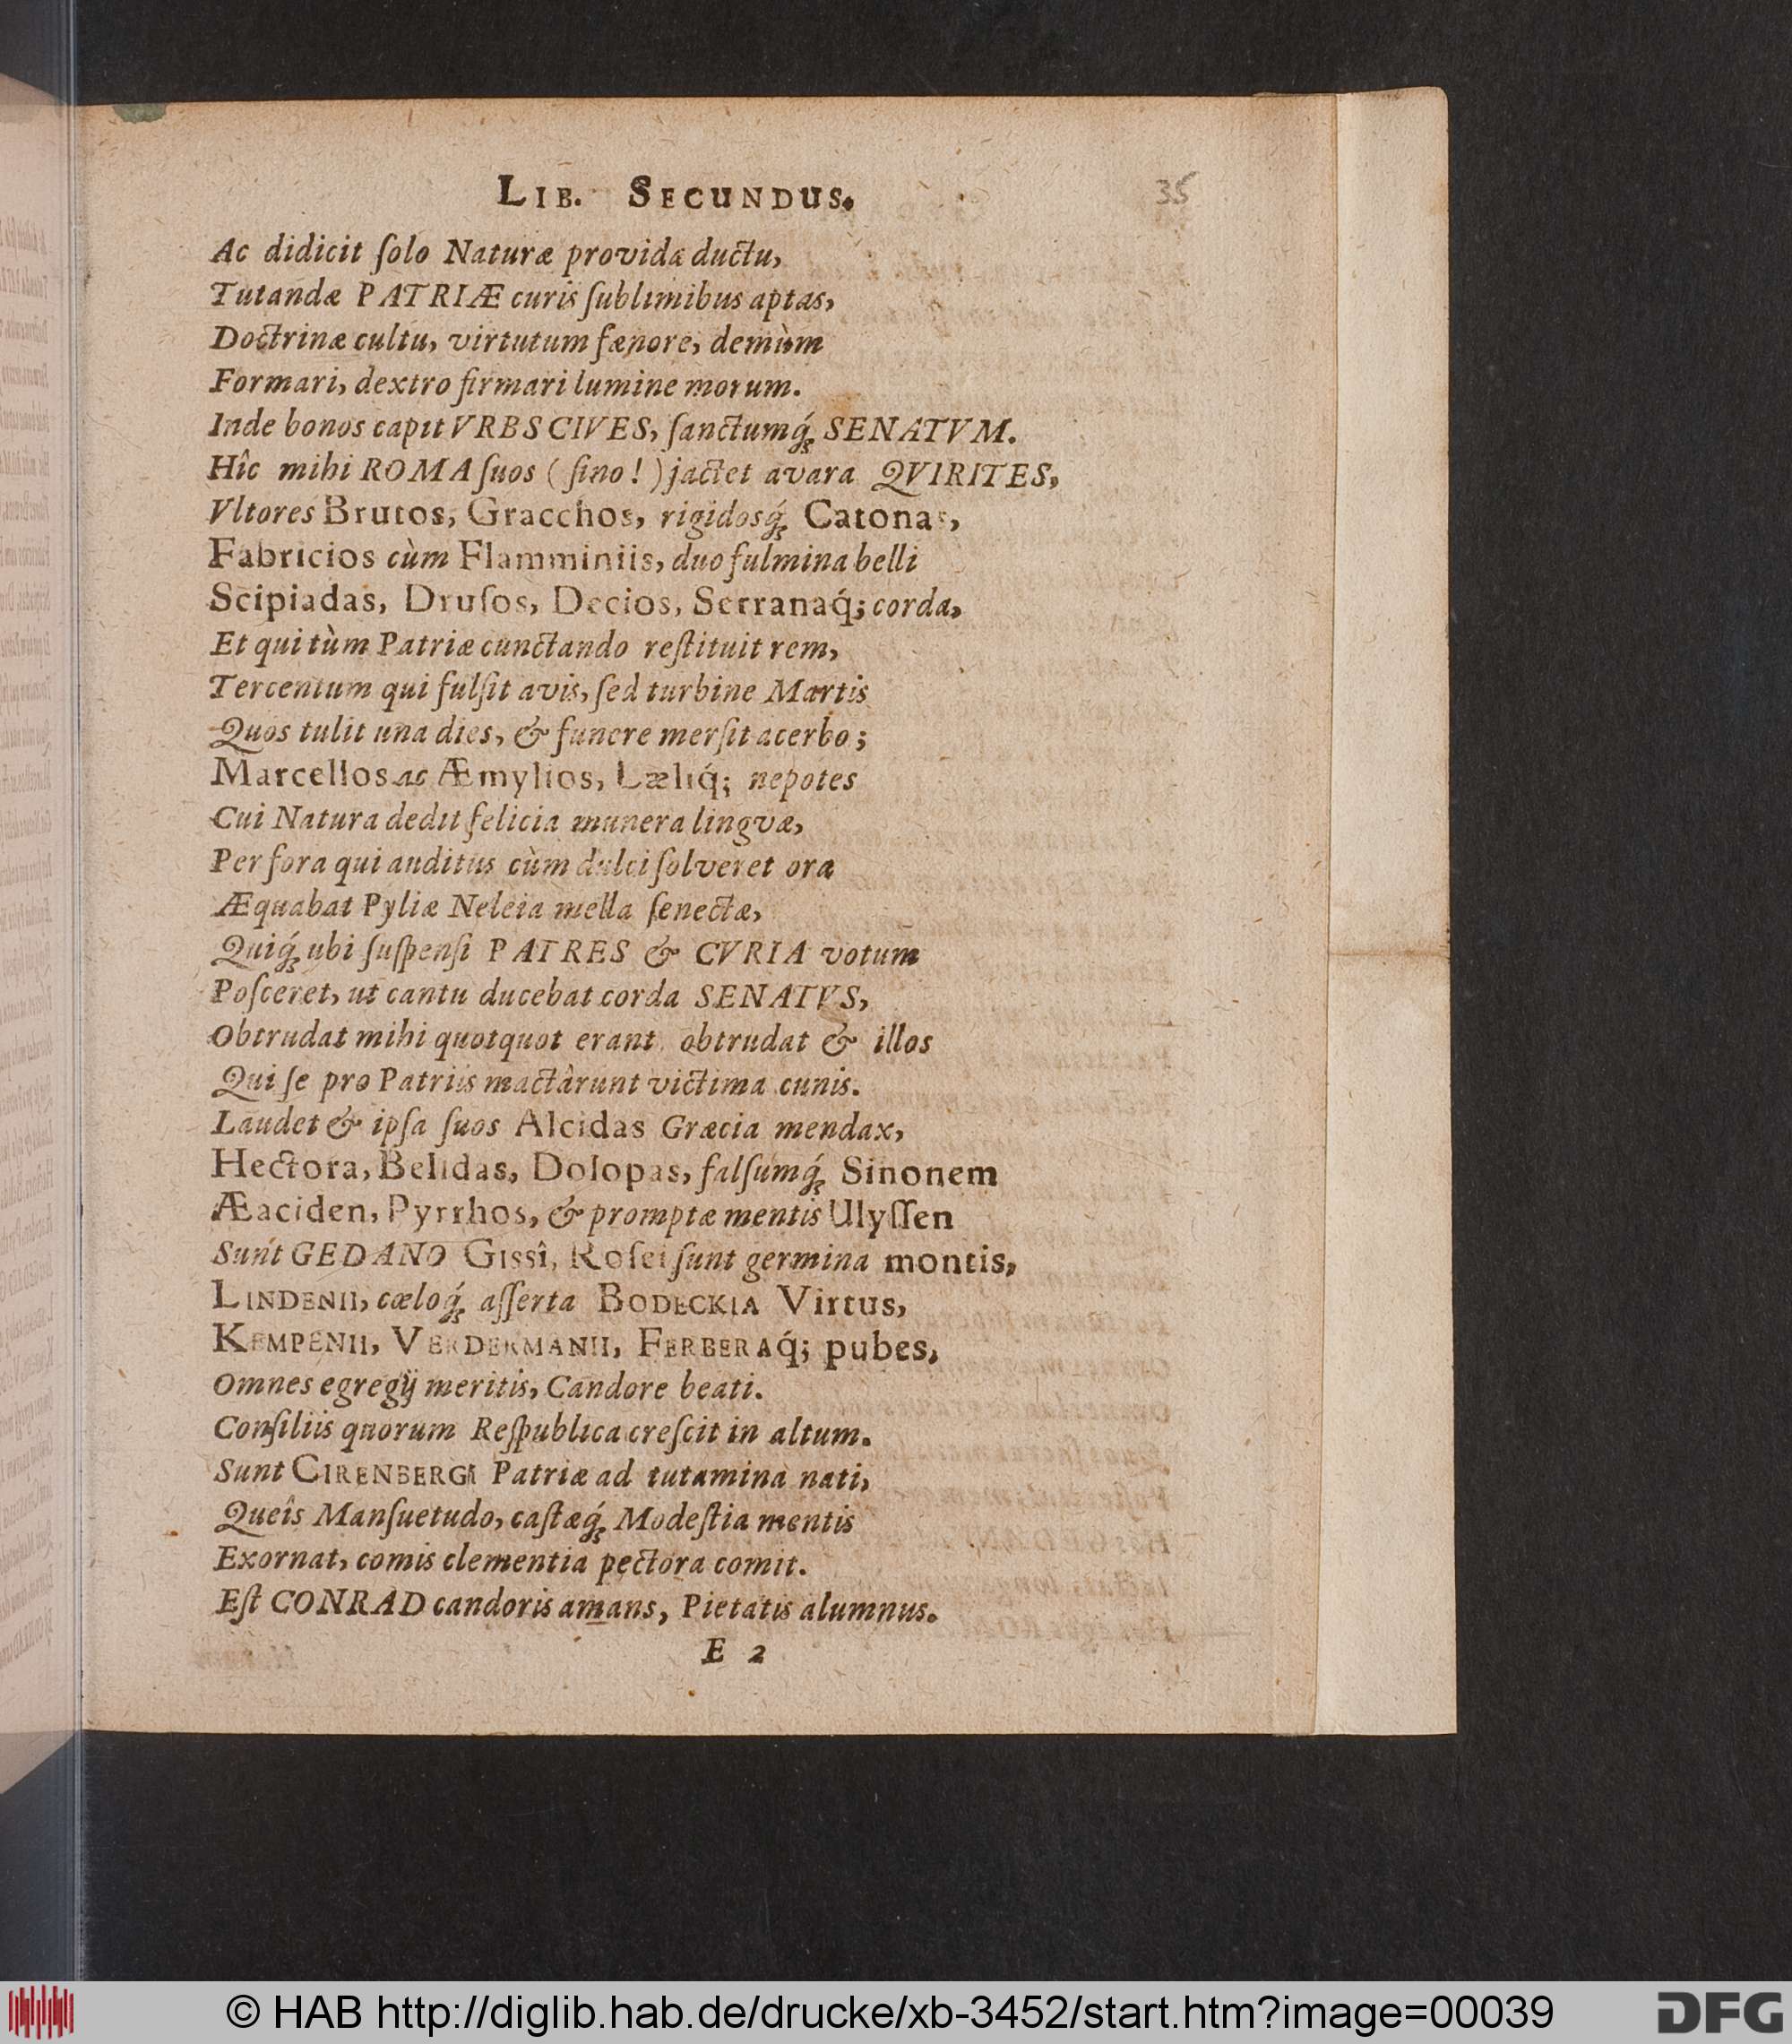 LIB. SECUNDUS.
35
Ac didicit ſolo Naturæ provida ductu,
Tutandæ PATRIÆ curis ſublimibus aptas,
Doctrinæ cultu, virtutum fænore, demùm
Formari, dextro firmari lumine morum.
Inde bonos capit VRBS CIVES, ſanctumq́ꝫ SENATVM.
Hîc mihi ROMA ſuos (ſino!) jactet avara QVIRITES,
Vltores Brutos, Gracchos, rigidosq́ꝫ Catonas,
Fabricios cùm Flamminiis, duo fulmina belli
Scipiadas, Druſos, Decios, Serranaq́; corda,
Et qui tùm Patriæ cunctando reſtituit rem,
Tercentum qui fulſit avis, ſed turbine Martis
Quos tulit una dies, & funere merſit acerbo;
Marcellos ac Æmylios, Læliq́; nepotes
Cui Natura dedit felicia munera lingvæ,
Per fora qui auditus cùm dulci ſolveret ora
Æquabat Pyliæ Neleia mella ſenectæ,
Quiq́ꝫ ubi ſuſpenſi PATRES & CVRIA votum
Poſceret, ut cantu ducebat corda SENATVS,
Obtrudat mihi quotquot erant obtrudat & illos
Qui ſe pro Patriis mactârunt victima cunis.
Laudet & ipſa ſuos Alcidas Græcia mendax,
Hectora, Belidas, Dolopas, falſumq́ꝫ Sinonem
Æaciden, Pyrrhos, & promptæ mentis Ulyſſen
Sunt GEDANO Gissî, Roſei ſunt germina montis,
LINDENII, cæloq́ꝫ aſſerta BODECKIA Virtus,
KEMPENII, VERDERMANII, FERBERAq́; pubes,
Omnes egregij meritis, Candore beati.
Conſiliis quorum Reſpublica creſcit in altum.
Sunt CIRENBERGI Patriæ ad tutamina nati,
Queîs Manſuetudo, caſtæq́ꝫ Modeſtia mentis
Exornat, comis clementia pectora comit.
Eſt CONRAD candoris amans, Pietatis alumnus.
E 2
© HAB http://diglib.hab.de/drucke/xb-3452/start.htm?image=00039
DFG